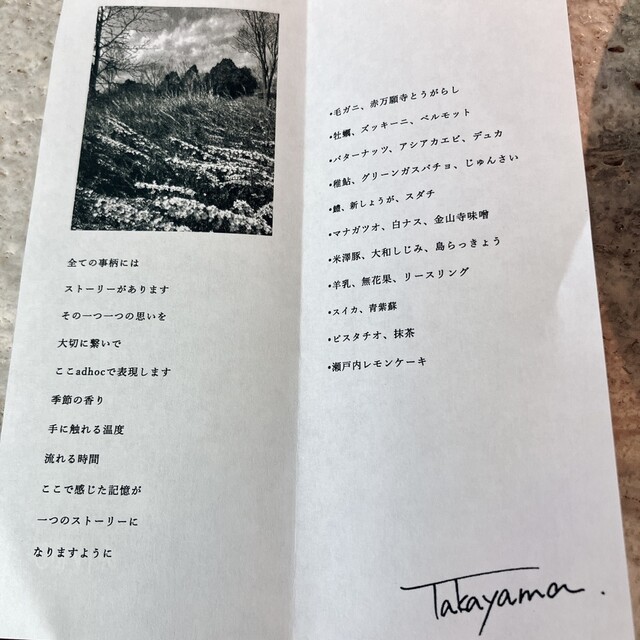 全ての事柄には
ストーリーがあります
その一つ一つの思いを
大切に繋いで
ここadhocで表現します
季節の香り
手に触れる温度
流れる時間
ここで感じた記憶が
一つのストーリーに
なりますように
•毛ガニ、赤万願寺とうがらし
•牡蠣、ズッキーニ、ベルモット
•バターナッツ、アシアカエビ、デュカ
•稚鮎、グリーンガスパチョ、じゅんさい
•鱧、新しょうが、スダチ
•マナガツオ、白ナス、金山寺味噌
•米澤豚、大和しじみ、島らっきょう
•羊乳、無花果、リースリング
•スイカ、青紫蘇
•ピスタチオ、抹茶
•瀬戸内レモンケーキ
Takayama.